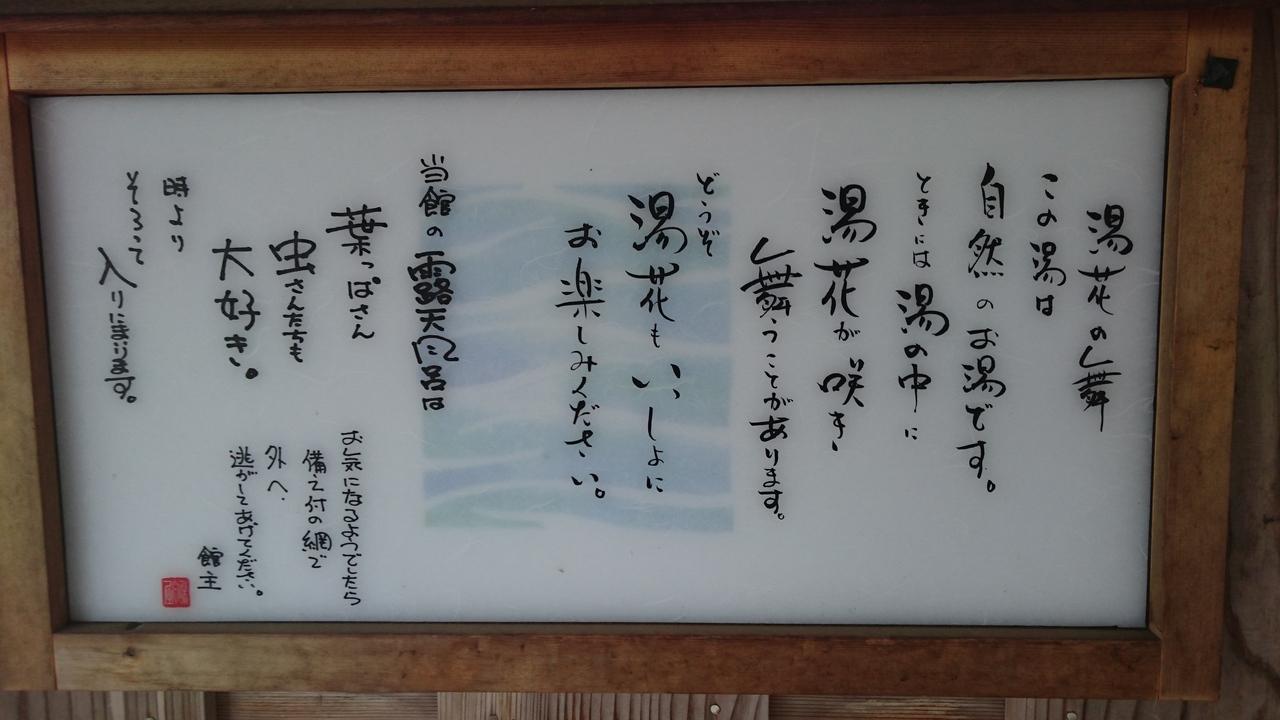 湯花の舞
この湯は
自然のお湯です。
ときには湯の中に
湯花が咲き
舞うことがあります。
どうぞ
湯花もいっしょに
お楽しみください。
当館の露天風呂は
葉っぱさん
虫さんたちも
大好き。
時より
そろって
入りにまいります。
お気になるようでしたら
備え付の網で
外へ
逃がしてあげてください。
館主